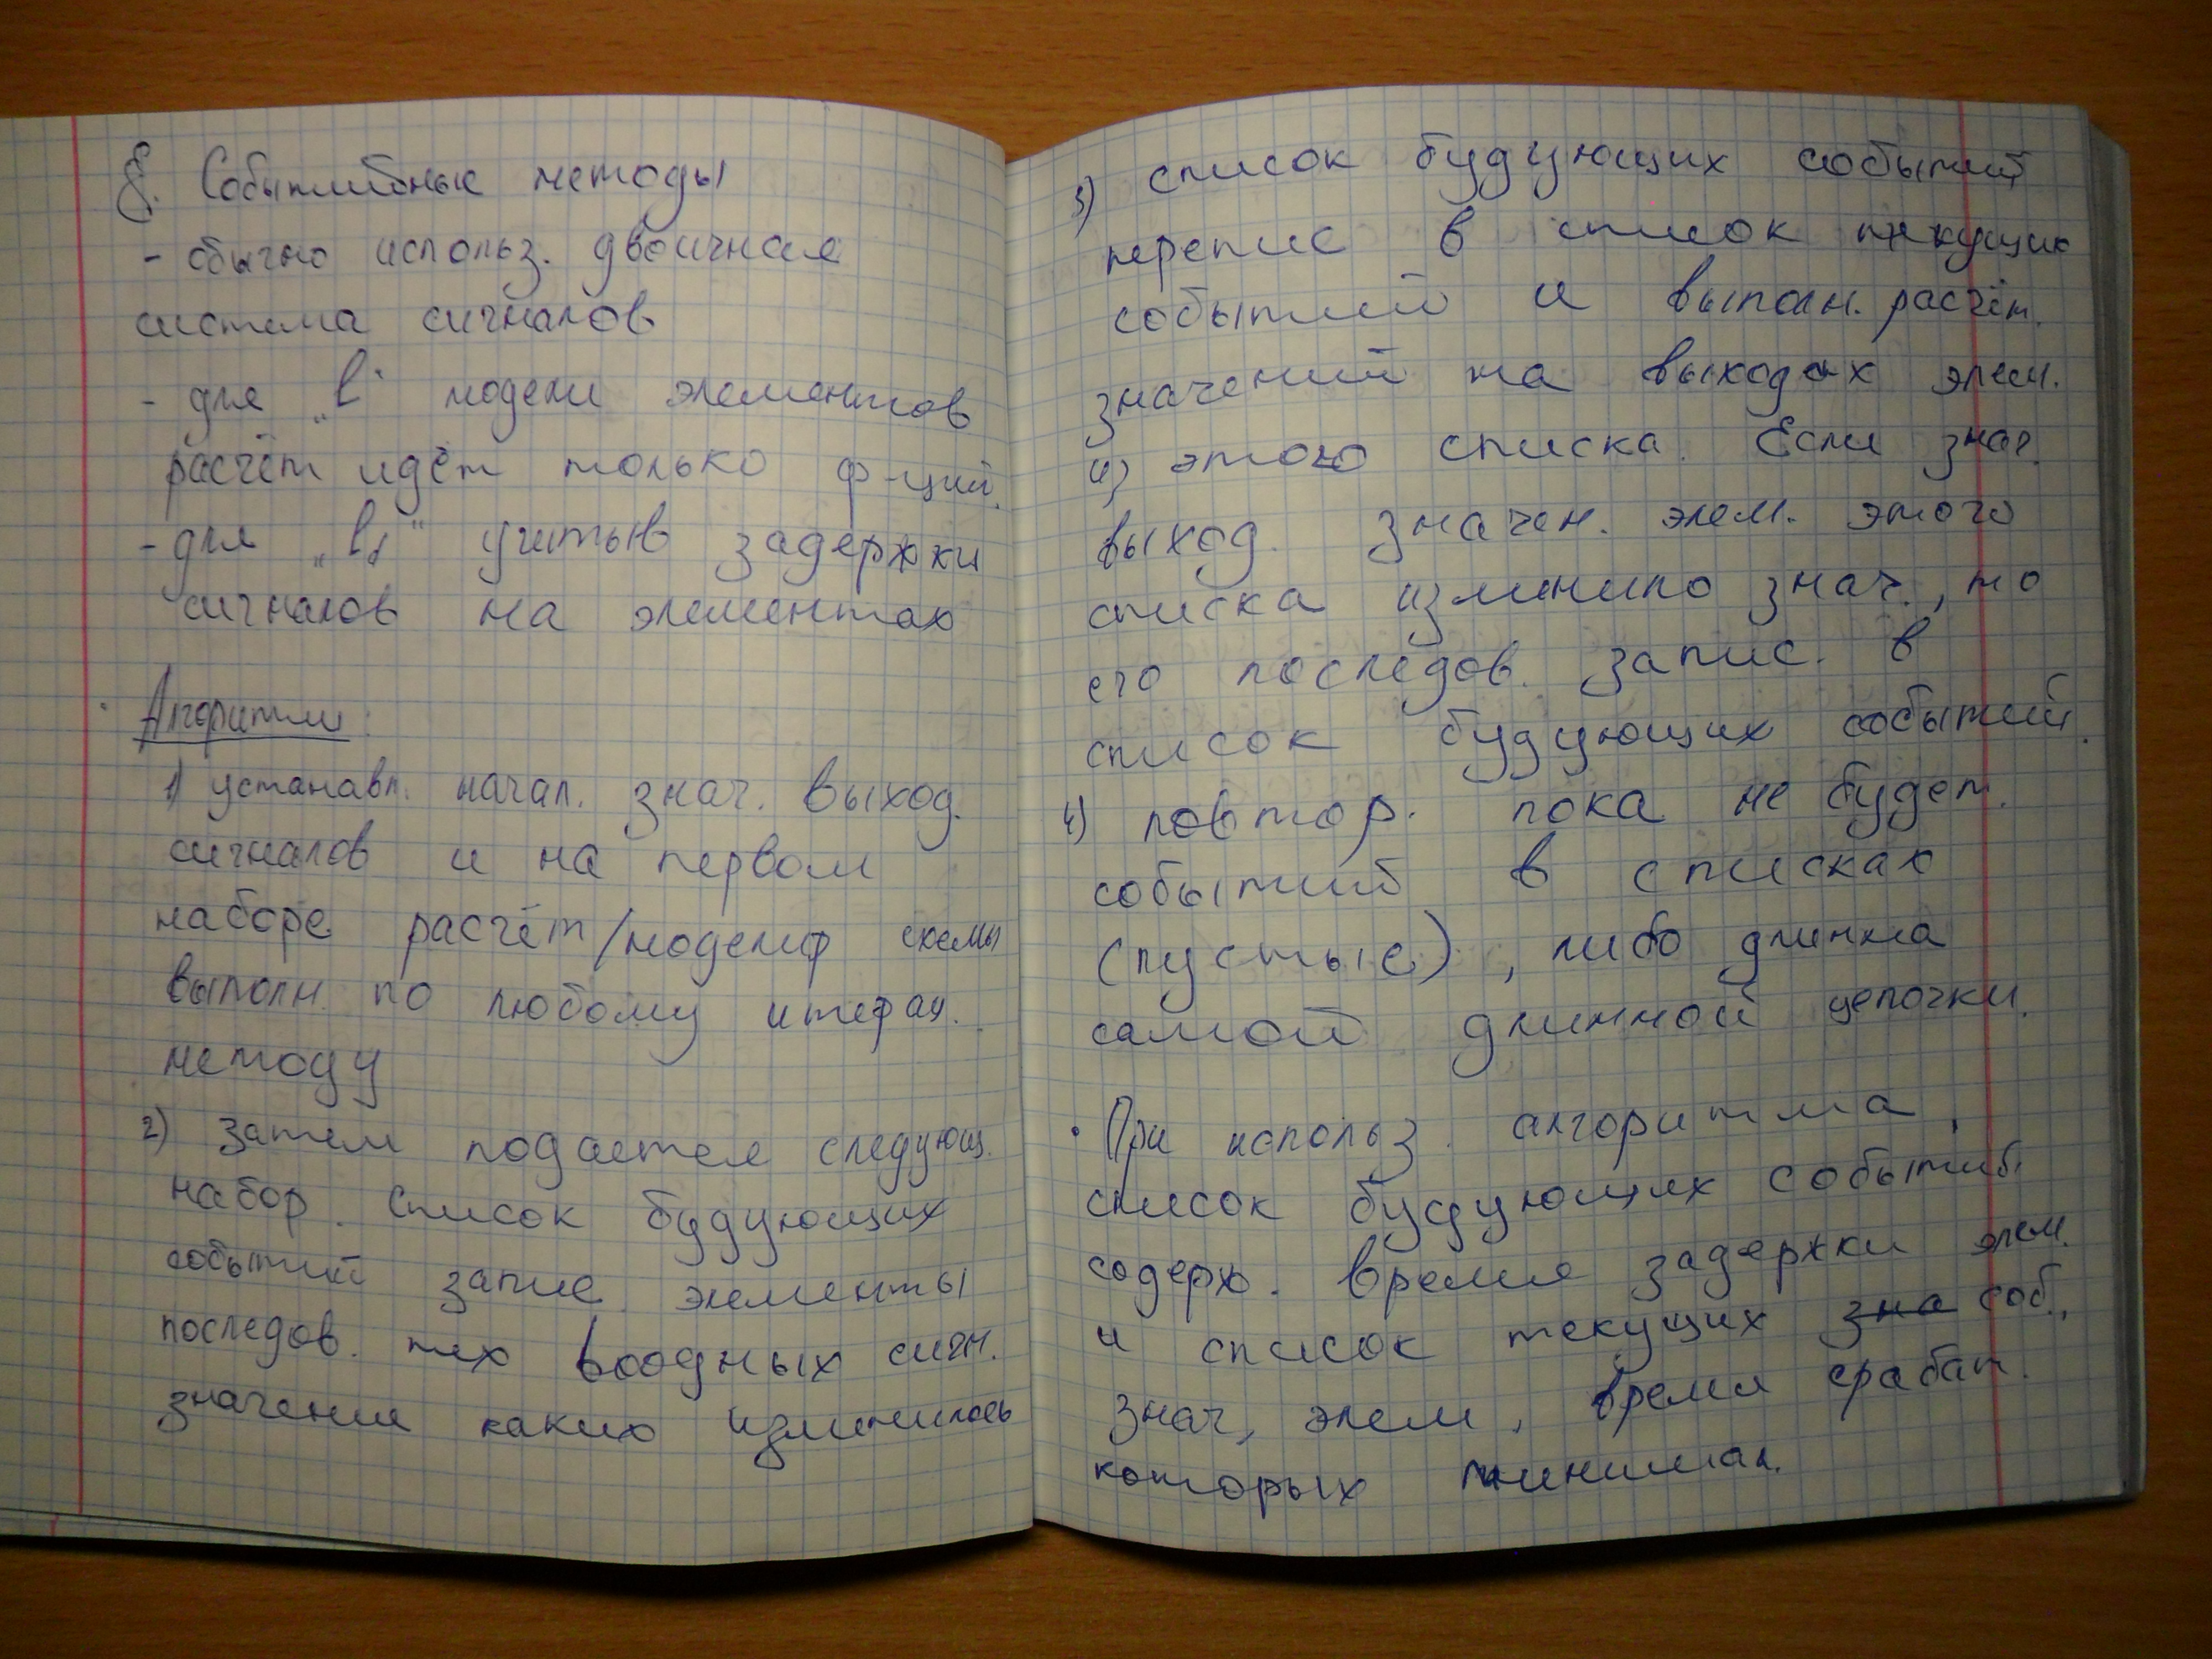 8. Событийные методы
- обычно использ. двоичная
система сигналов
- для „b" модели элементов
расчёт идёт только ф-ций.
- для „b₁" учитыв задержки
сигналов на элементах
Алгоритм:
1) установл. начал. знач. выход.
сигналов и на первом
наборе расчёт/моделир схемы
выполн. по любому итерац.
методу
2) затем подается следующ.
набор. Список будующих
событий запис. элементы
последов. тех входных сигн.
значения каких изменилось
3) список будующих событий
перепис в список текущих
событий и выполн. расчёт.
значений на выходах элем.
4) этого списка. Если знач.
выход. значен. элем. этого
списка изменило знач., то
его последов. запис. в
список будующих событий.
4) повтор. пока не будет.
событий в списках
(пустые), либо длинна
самой длинной цепочки.
• При использ. алгоритма,
список будующих событий
содерж. время задержки элем.
и список текущих зна соб.,
знач, элем, время срабат.
которых минимал.